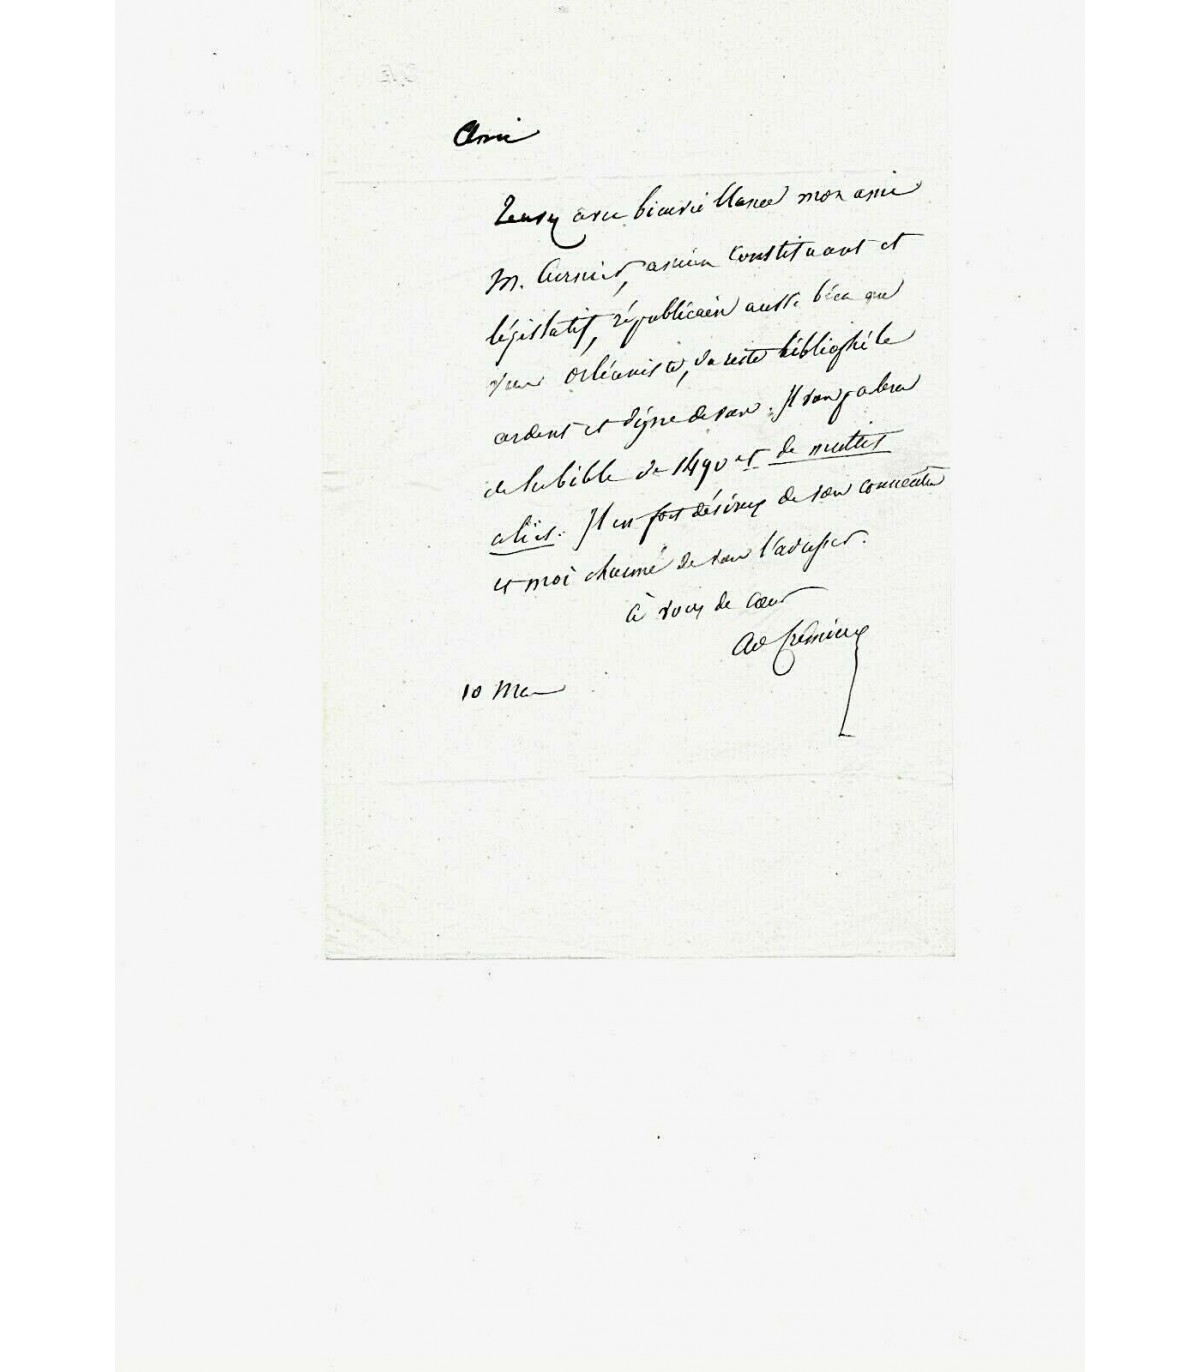 Ami
Recevez avec bienveillance mon ami
M. ancien constituant et
législatif, républicain aussi bien que
vous orléaniste, du reste bibliophile
ardent et digne de vous. Il vous parlera
de la bible de 1490 et de multis
aliis. Il est fort désireux de vous connaitre
et moi charmé de vous l'adresser.
à vous de cœur
Ad Crémieux
10 Mai